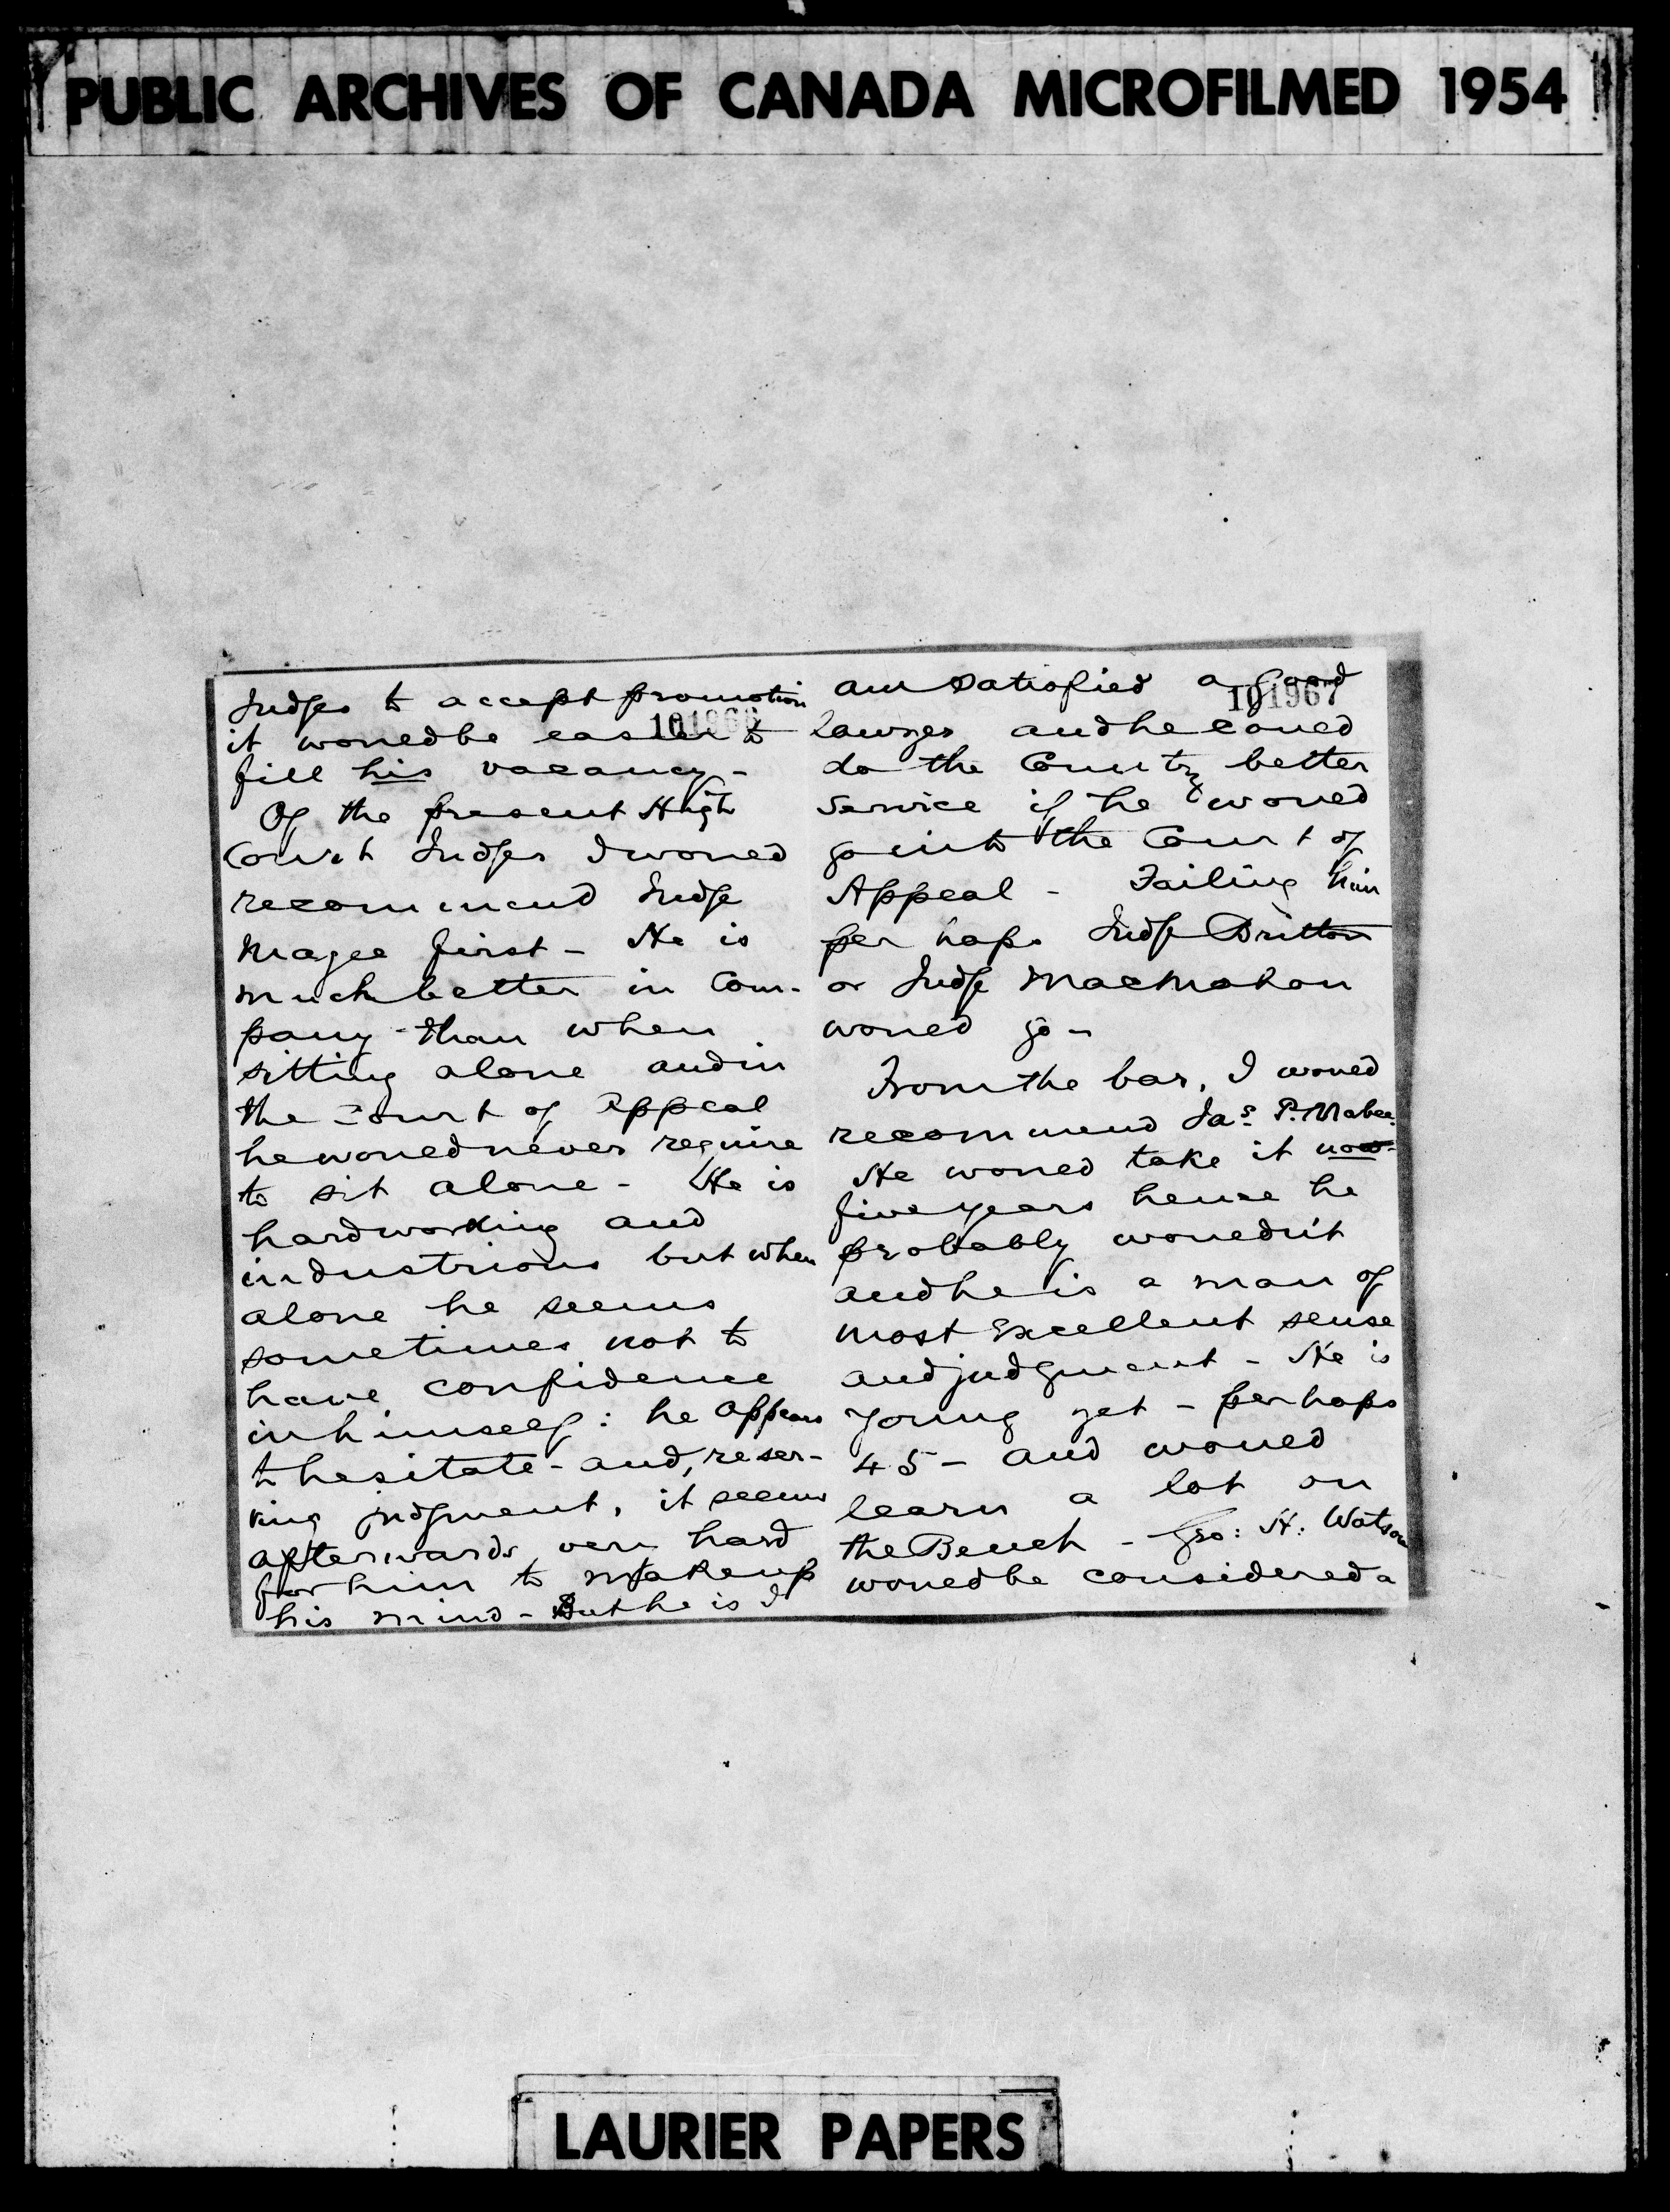 PUBLIC ARCHIVES OF CANADA MICROFILMED 1954
Judges to accept promotion
101966
it would be easier to
fill his vacancy -
Of the present High
Court Judges I would
recommend Judge
Magee first - He is
much better in Com-
pany than when
sitting alone and in
the Court of Appeal
he would never require
to sit alone - He is
hardworking and
industrious but when
alone he seems
sometimes not to
have confidence
in himself: he appears
to hesitate - and, reser-
ving judgment, it seems
afterwards very hard
for him to make up
his mind - But he is I
am satisfied a good
101967
lawyer and he could
do the Country better
service if he would
go into the Court of
Appeal - Failing him
perhaps Judge Britton
or Judge MacMahon
would go -
From the bar, I would
recommend Jas. P. Mabee.
He would take it now -
five years hence he
probably wouldn't
and he is a man of
most excellent sense
and judgment - He is
young yet - perhaps
45 - and would
learn a lot on
the Bench - Geo: H: Watson
would be considered a
LAURIER PAPERS